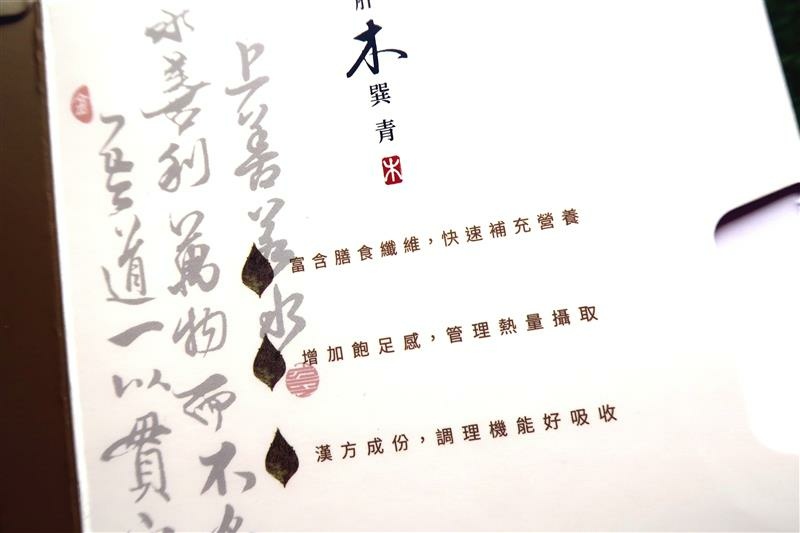 肝
木
巽
青
木
富含膳食纖維，快速補充營養
增加飽足感，管理熱量攝取
漢方成份，調理機能好吸收
上善若水
水善利萬物而不
吾道一以貫